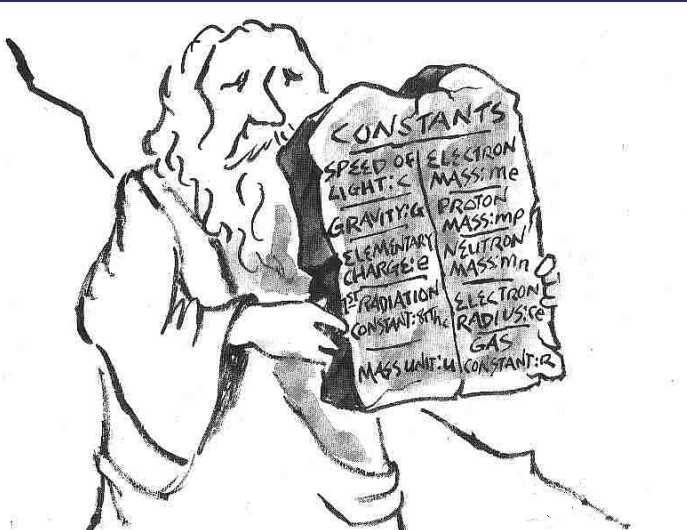 CONSTANTS
SPEED OF
LIGHT:C
GRAVITY:G
ELEMENTARY
CHARGE:e
1ST RADIATION
CONSTANT:8πhc
MASS UNIT:u
ELECTRON
MASS:me
PROTON
MASS:mp
NEUTRON
MASS:mn
ELECTRON
RADIUS:re
GAS
CONSTANT:R